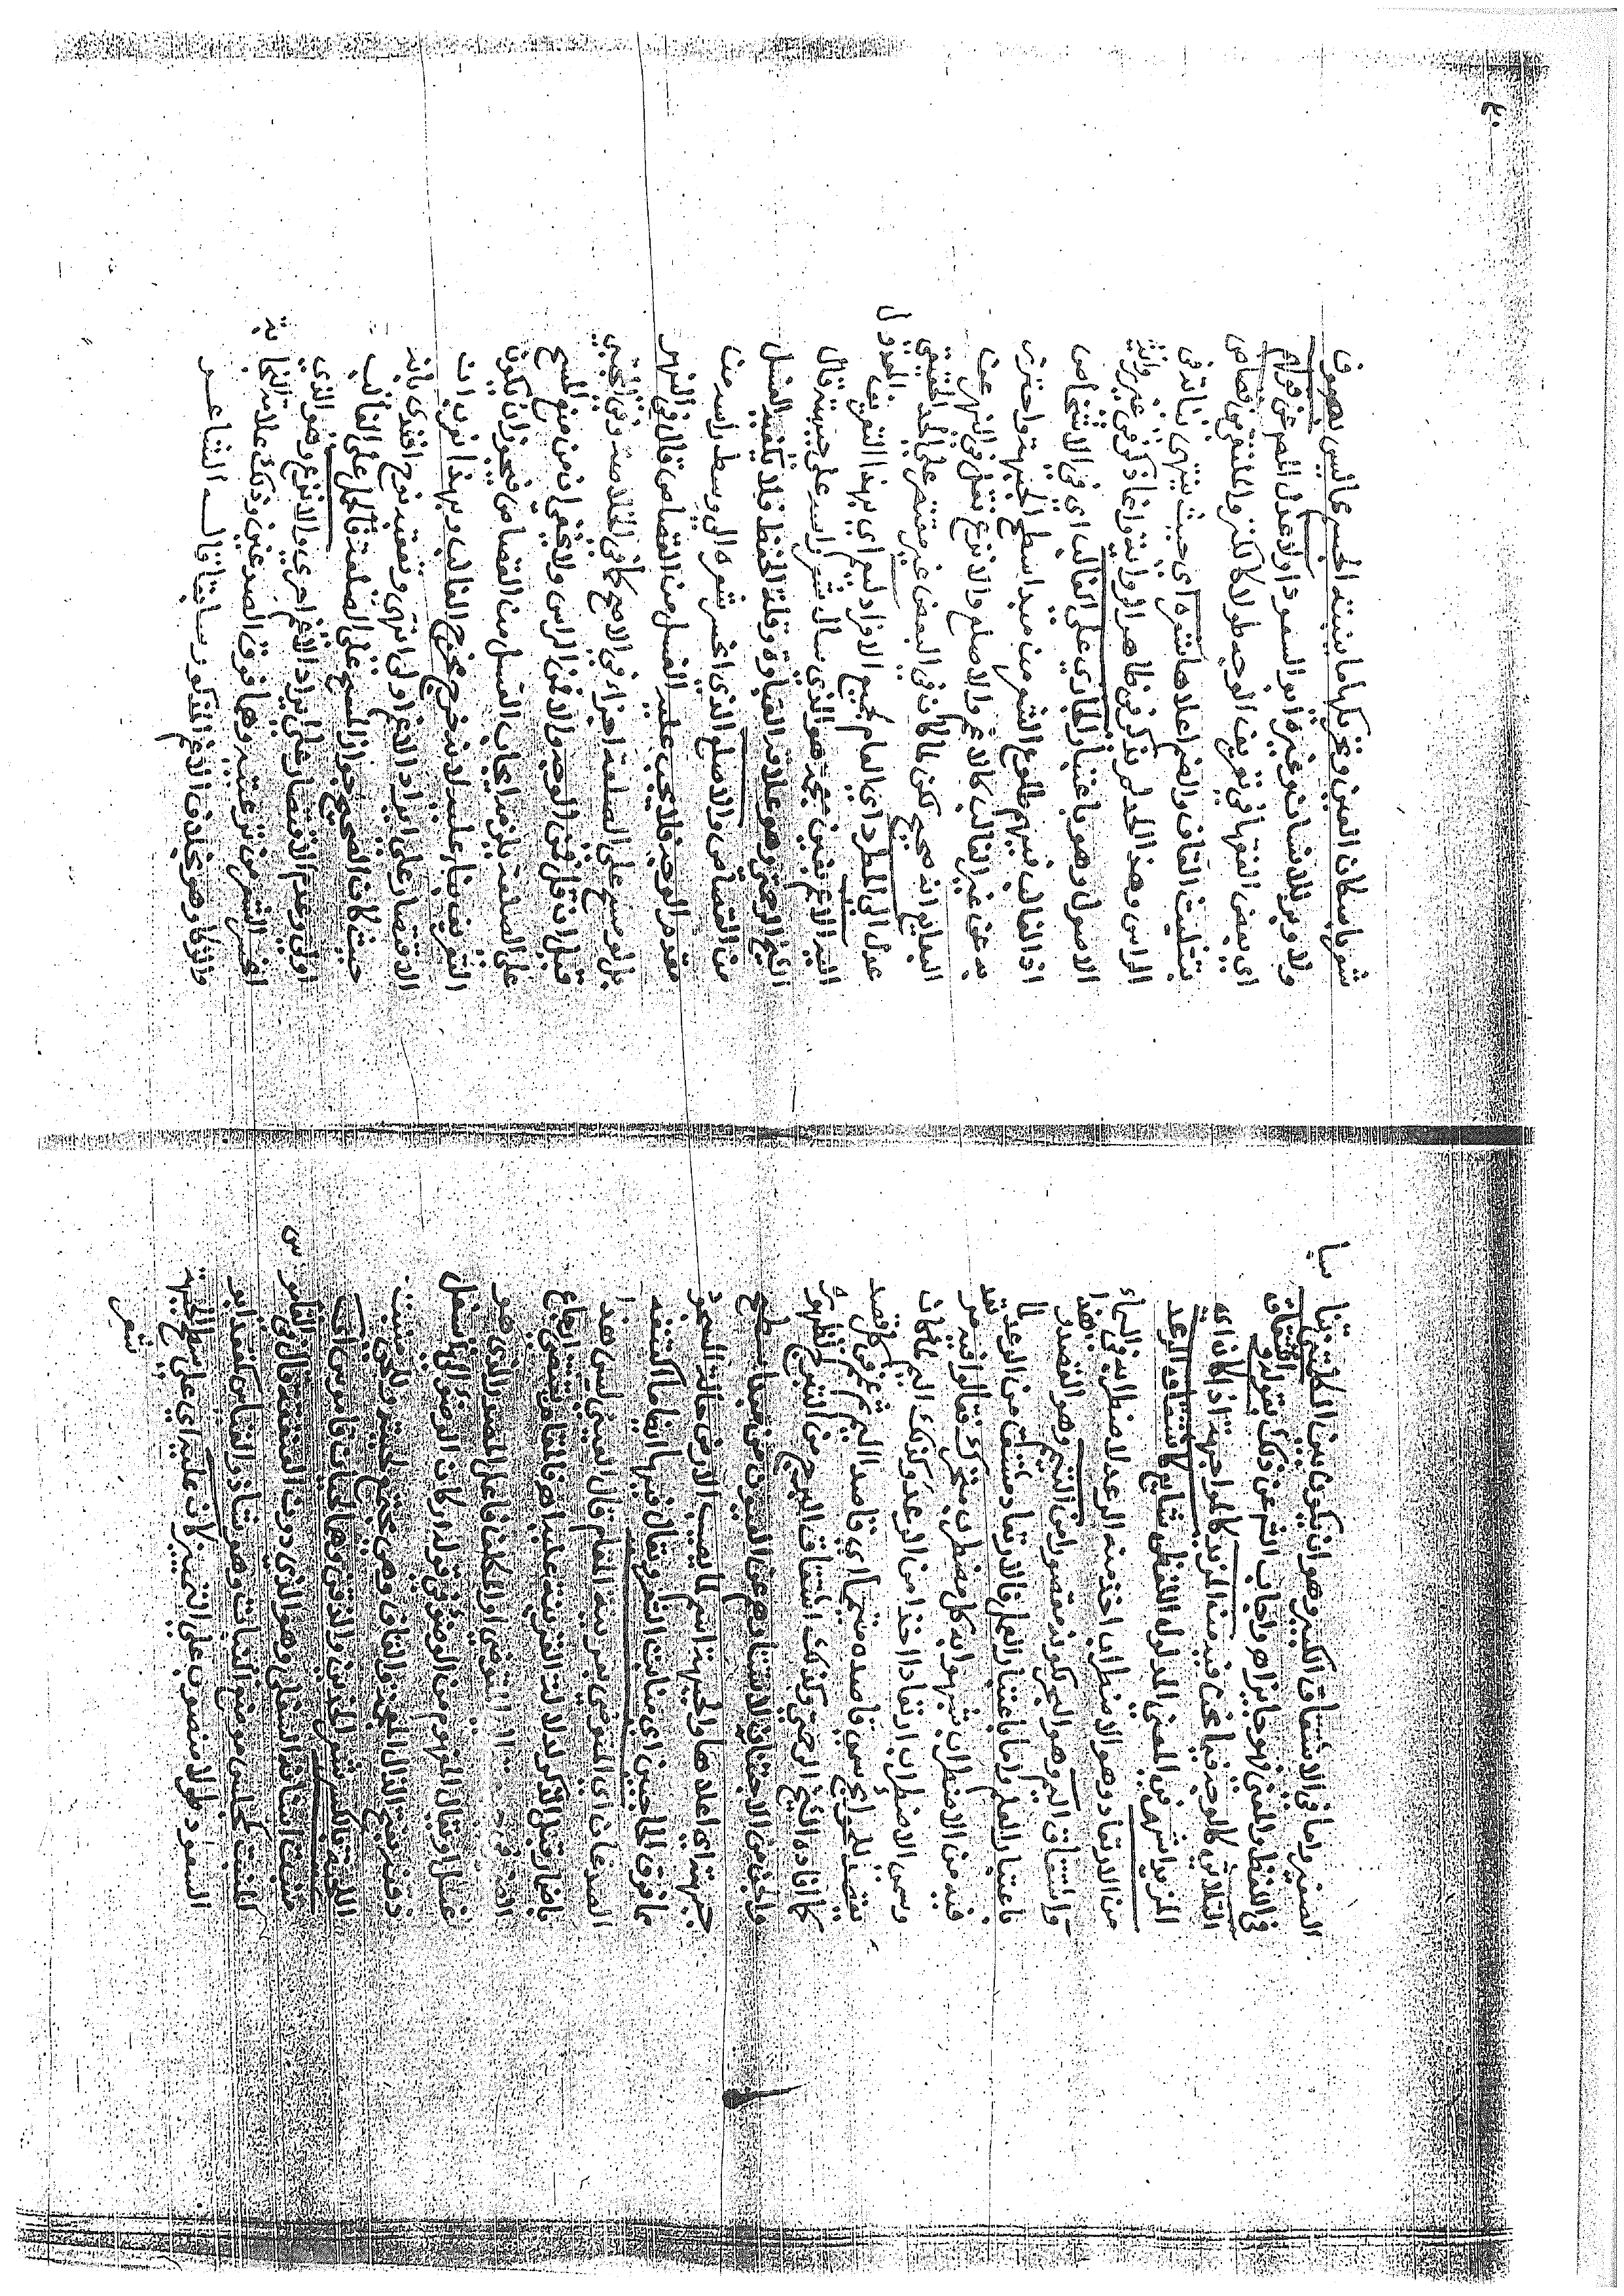 الصغير واما في الاشتقاق الكبير وهو ان يكون بين الكلمتين تناسبا
في اللفظ والمعنى فهو جايز اهـ واجاب الشم عن ذلك بقوله واشتقاق
الثلاثي كالوجه فيما نحن فيه من المزيد كالمواجهة اذا كان اي
المزيد اشهر في المعنى المدلول اللفظي شايع كاشتقاق الرعد
من الارتعاد وهو الاضطراب اخذ منه الرعد لاضطرابه في السماء
واشتقاق اليم وهو البحر لكونه مقصودا من التيمم وهو القصد وهذا
باعتبار العلم واما باعتبار العمل فالارتعاد مشتق من الرعد لما
فيه من الاضطراب شبهوا به كل مضطرب متحرك فقالوا فيه مرتعد
وسمى الاضطراب ارتعادا اخذا من الرعد وكذلك اليم لما كان
يقصد للحوايج سمى قاصده متيمما اي قاصد اليم ثم عم في كل قصد
كما افاده الشيخ الرحمتي وكذلك اشتقاق البرج من التبرج لظهوره
والجن من الاجتنان لاستتارهم عن العيون من مبدا سطح
جبهته اي اعلاها والجبهة اسم لما يصيب الارض حالة السجود
ما فوق الحاجبين اي منابت الشعر ويقال فيها ايضا ما اكتنفه
الصدغان اي المتوضي بقرينة المقام قال العيني ليس هذا
باضمار قبل الذكر لدلالة القرينة عليه اهـ فالمقام يقتضي ارجاع
المتوضي او المكلف فاعل المصدر الذي هو
غسل او يقال المفهوم من الوضوء في قوله اركان الوضوء الى اسفل
ذقنه بفتح الذال المعجمة والقاف وهي مجتمع لحييه واللحي منبت
اللحية بالكسر شعر الخدين والذقن وهما لحيان قاموس اي
منبت اسنانه السفلى وهو الذي دون العنفقة قال في القاموس
المنبت كمجلس موضع النبات وهو شاذ والقياس كمقعد ابو
السعود طولا منصوب على التمييز لان عليه اي على سطح الجبهة
شعر
٤٠
شعر باسكان العين وتحريكها ما ينبته الجسم مما ليس بصوف
ولا وبر للانسان وغيره ابو السعود ولا عدل المص عن قولهم
اي بعض الفقها في تعريف الوجه طولا كالكنز والملتقى من قصاص
بتثليث القاف والضم اعلاها شعره اي حيث ينتهي نباته في
الراس وهذا الحد لم يذكر في ظاهر الرواية وانما ذكر في غير رواية
الاصول د وهو باعتبار الجاري على الغالب اي في الاشخاص
اذ الغالب فيهم طلوع الشعر من مبدا سطح الجبهة واحترز
به عن غير الغالب كالاغم والاصلع والانزع نقل في النهر عن
البدايع انه صحيح لكن لما كان في البعض غير مقتصر على الحد الحقيقي
عدل الى المطرد اي العام لجميع الافراد ليعم اي بهذا التعريف المعدول
اليه الاغم بغين معجمة هو الذي سال شعر راسه على جبينه قال
الشيخ الرحمتي وهو علامة الغباوة وقلة الحفظ فلا يكفيه الغسل
من القصاص والاصلع الذي انحسر شعره الى وسط راسه من
مقدم الوجه فلا يجب عليه الغسل من القصاص قال في النهر
بل لو مسح على الصلعة اجزاه في الاصح كما في الخلاصة وفي المجتبى
قيل ان قل فمن الوجه والا فمن الراس ولا يخفى ان من منع المسح
على الصلعة يلزمه ايجاب الغسل من القصاص فيجوز ان يكون
التعريف بناء عليه لانه خرج مخرج الغالب وبهذا تعرف ان
الاقتصار على ايراد الاغم اولى انتهى وتعقبه نوح افندي بانه
حيث كان الصحيح جواز المسح على الصلعة فالحمل على الغالب
اولى وعدم الاقتصار على ايراد الاغم احرى والانزع وهو الذي
انحسر الشعر من نزعتيه وهما فوق الصدغين وذلك علامة النجابة
والذكا وهو بخلاف الاغم المذكور سابقا قال الشاعر